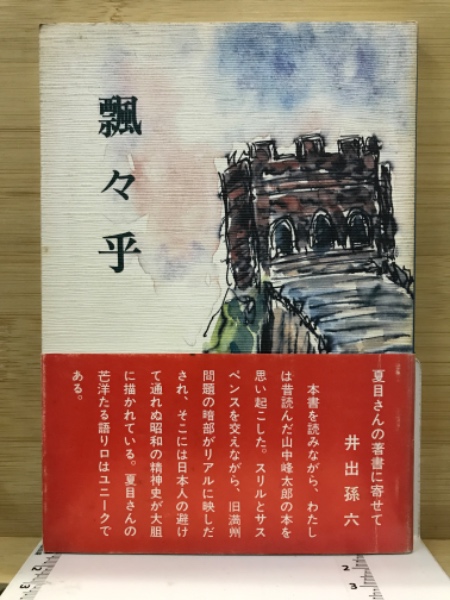 飄々乎
夏目さんの著書に寄せて
井出孫六
本書を読みながら、わたし
は昔読んだ山中峰太郎の本を
思い起こした。スリルとサス
ペンスを交えながら、旧満州
問題の暗部がリアルに映しだ
され、そこには日本人の避け
て通れぬ昭和の精神史が大胆
に描かれている。夏目さんの
茫洋たる語り口はユニークで
ある。
2
3